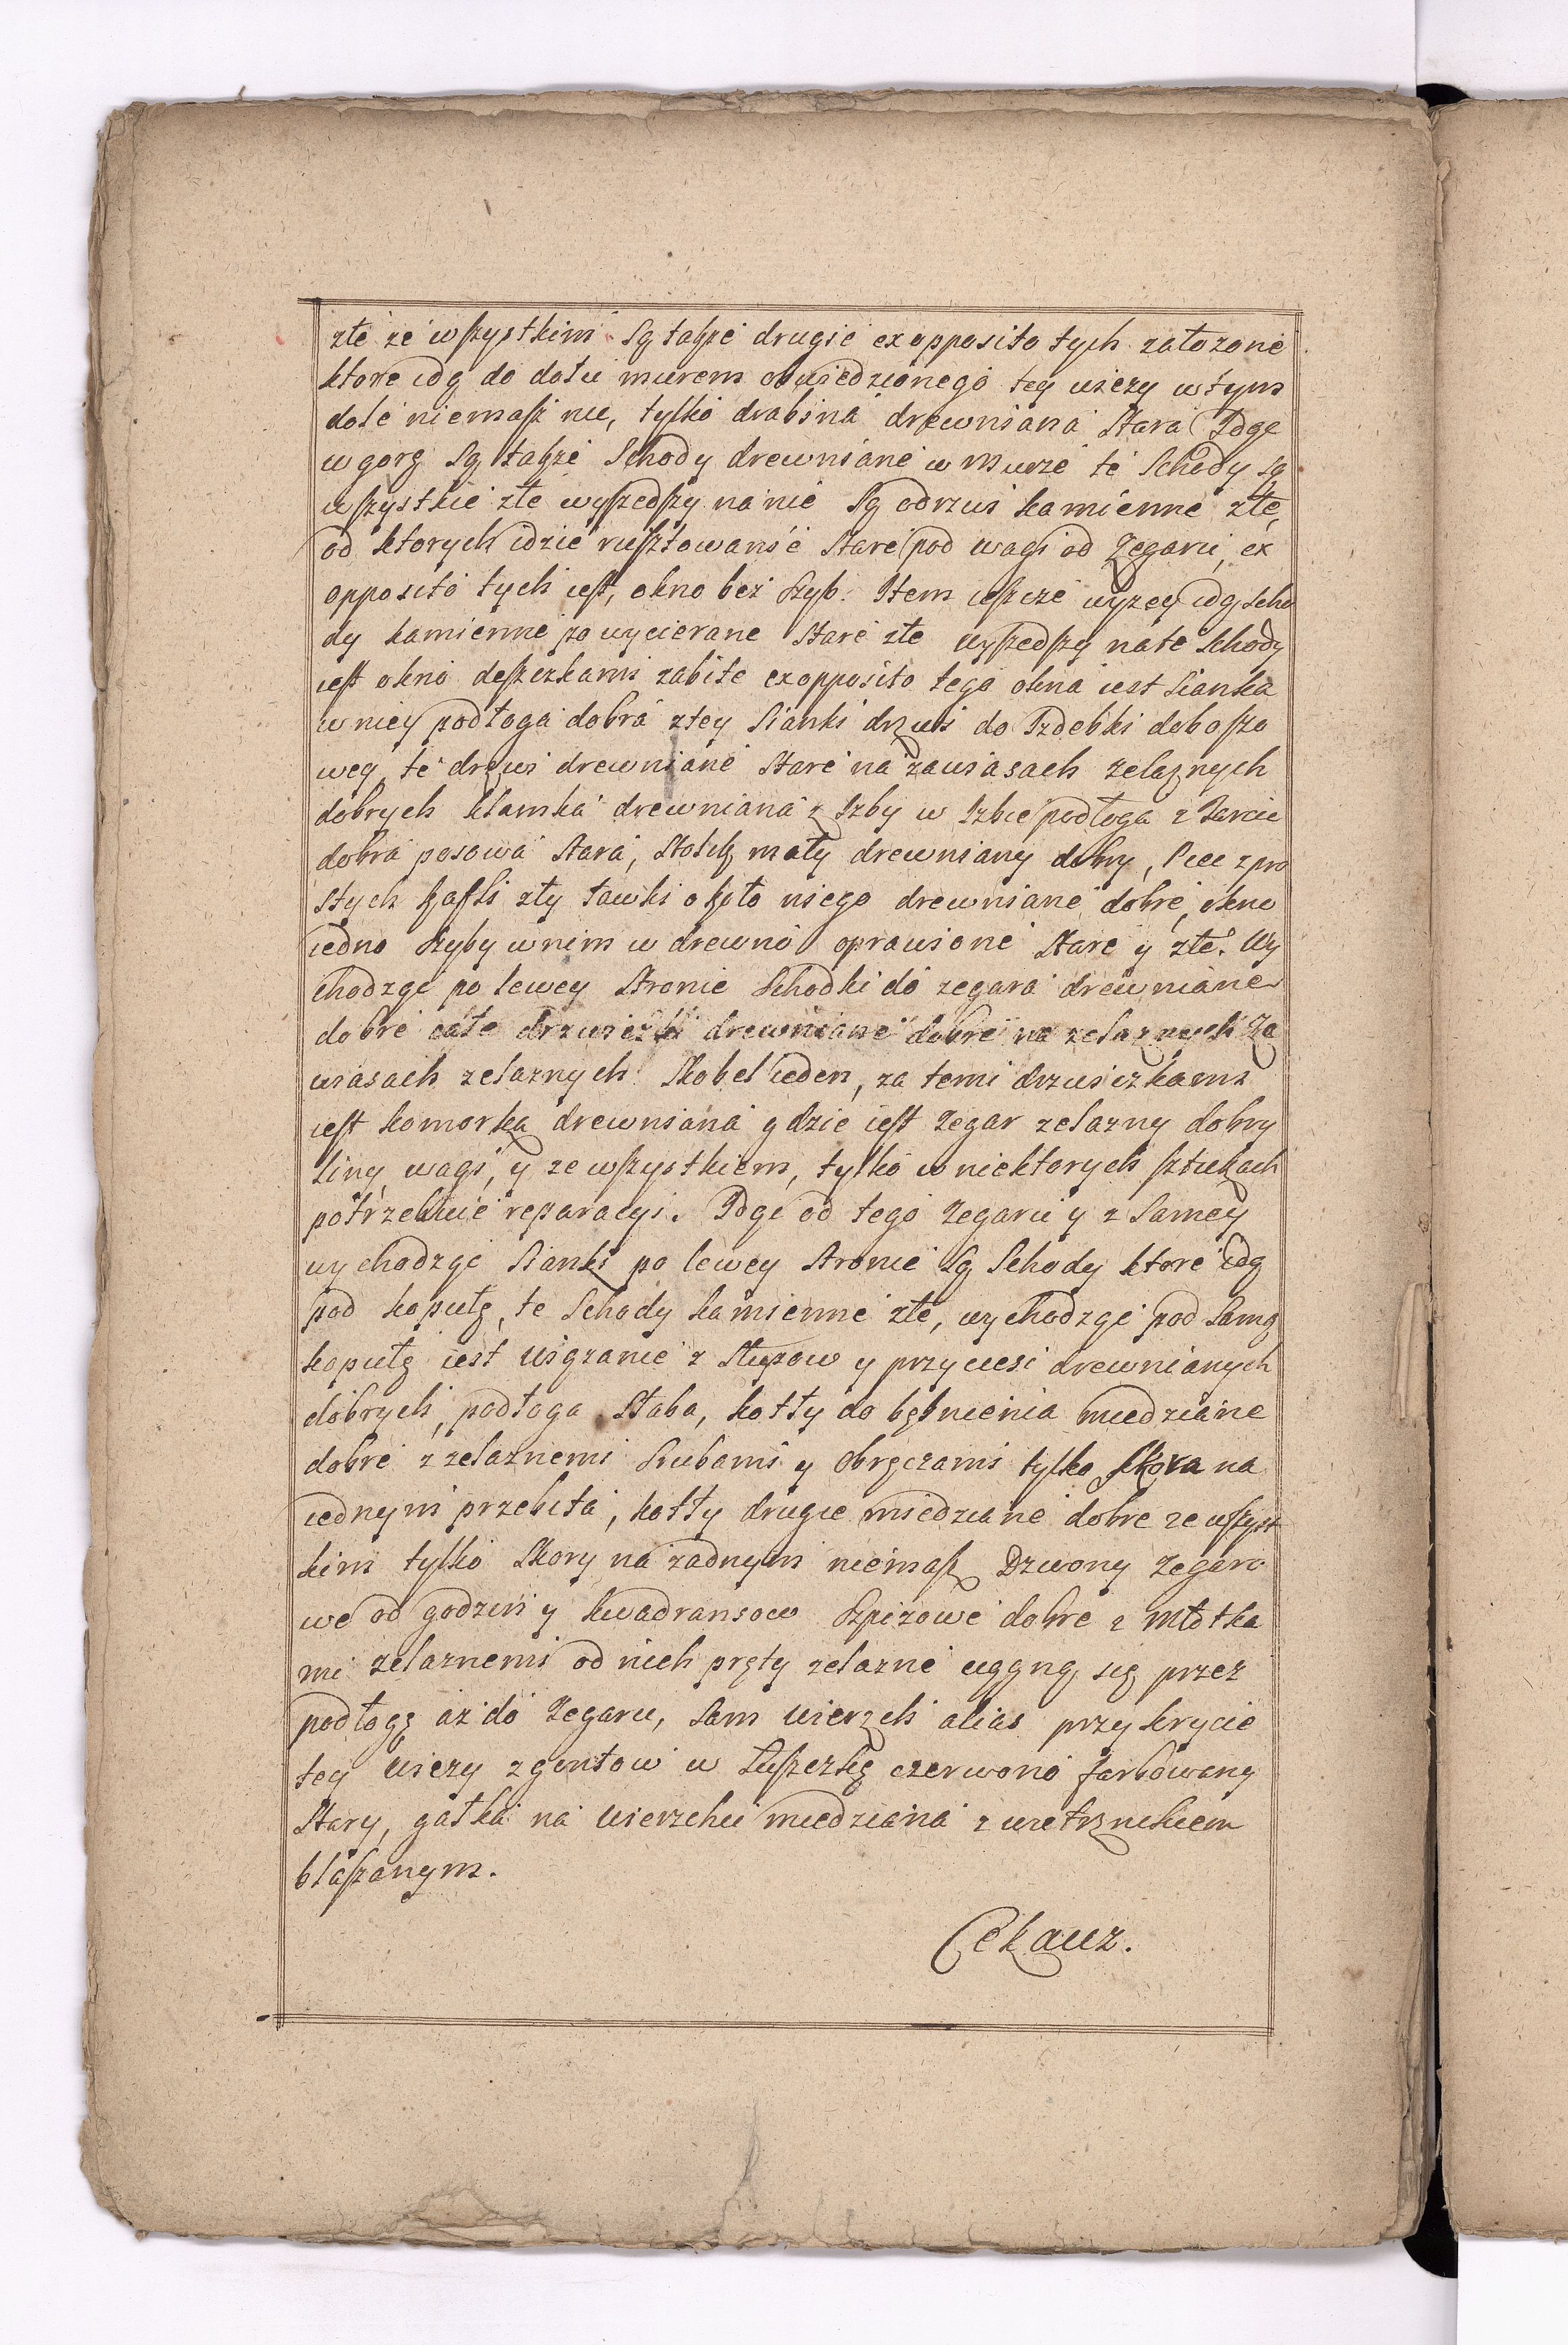 złe ze wszystkim. Są także drugie ex opposito tych założone
ktore idą do dołu murem obwiedzionego tey wieży w tym
dole niemasz nic, tylko drabina drewniana stara Idąc
w gorę są także Schody drewniane w murze te Schody są
wszystkie złe wyszedszy na nie są odrzwi kamienne złe,
od ktorych idzie rusztowanie stare pod wagi od Zegaru, ex
opposito tych iest, okno bez szyb. Item ieszcze wyzey idą scho
dy kamienne powycierane stare złe wyszedszy na te schody
iest okno deszczkami zabite ex opposito tego okna iest Sianka
w niey podłoga dobra z tey Sianki drzwi do Izdebki doboszo
wey, te drzwi drewniane stare na zawiasach zelaznych
dobrych klamka drewniana z Izby w Izbie podłoga z Tarcic
dobra posowa stara, stolik mały drewniany dobry, Piec z pro
stych kafli zły ławki około niego drewniane dobre, okno
iedno szyby w nim w drewno oprawione stare y złe. Wy
chodząc po lewey stronie schodki do zegara drewniane
dobre całe drzwiczki drewniane dobre na zelaznych Za
wiasach zelaznych Skobel ieden, za temi drzwiczkami
iest komorka drewniana gdzie iest zegar zelazny dobry
liny, wagi, y ze wszystkiem, tylko w niektorych sztukach
potrzebuie reparacyi. Idąc od tego Zegaru y z Samey
wychodząc Sianki po lewey stronie są Schody ktore idą
pod kopułę, te Schody kamienne złe, wychodząc pod Samą
kopułę iest wiązanie z słupow y przyciesi drewnianych
dobrych, podłoga słaba, kotły do bębnienia miedziane
dobre z zelaznemi szrubami y obręczami tylko skora na
iednym przebita, kotły drugie miedziane dobre ze wszyst
kim tylko skory na zadnym niemasz Dzwony Zegaro
we od godzin y kwadransow szpizowe dobre z Młotka
mi zelaznemi od nich pręty zelazne ciągną się przez
podłogę az do Zegaru, Sam wierzch alias przykrycie
tey wiezy z gontow w Łuszczkę czerwono farbowany
stary, gałka na wierzchu miedziana z wietrznikiem
blaszanym.
Cekauz.